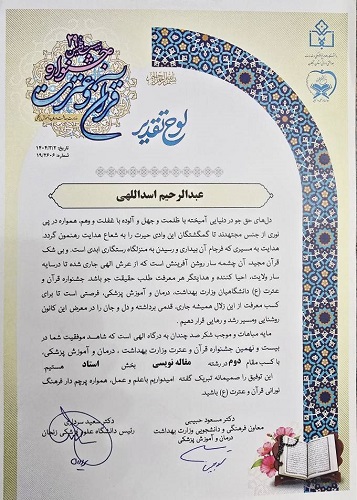 جشنواره
قرآن و عترت
لوح تقدیر
تاریخ: ۱۴۰۴/۲/۲
شماره: ۱۹/۲۶۰۶
عبدالرحیم اسداللهی
دل‌های حق جو در دنیایی آمیخته با ظلمت و جهل و آلوده با غفلت و وهم، همواره در پی
نوری از جنس مجتهدند تا گمگشتگان این وادی حیرت را به شعاع هدایت رهنمون گردد.
هدایت به مسیری که فرجام آن بیداری و رسیدن به منزلگاه رستگاری ابدی است. و بی شک
قرآن مجید، آن چشمه سار روشن آفرینش است که از عرش الهی جاری شده تا در سایه
سار ولایت، احیا کننده و هدایتگر هر معرفت طلب حقیقت جو باشد. جشنواره قرآن و
عترت (ع) دانشگاهیان وزارت بهداشت، درمان و آموزش پزشکی، فرصتی است تا برای
کسب معرفت از این زلال همیشه جاری، قدمی برداشته و دل و جان را در معرض این کانون
روشنایی ومسیر رشد و رهایی قرار دهیم.
مایه مباهات و موجب شکر صد چندان به درگاه الهی است که شاهد موفقیت شما در
بیست و نهمین جشنواره قرآن و عترت وزارت بهداشت ، درمان و آموزش پزشکی،
با کسب مقام دوم در رشته مقاله نویسی بخش استاد هستیم.
این توفیق را صمیمانه تبریک گفته امیدواریم باعلم و عمل، همواره پرچم دار فرهنگ
نورانی قرآن و عترت (ع) باشید.
دکتر مسعود حبیبی
معاون فرهنگی و دانشجویی وزارت بهداشت
درمان و آموزش پزشکی
دکتر سعید
رئیس دانشگاه علوم پزشکی زنجان